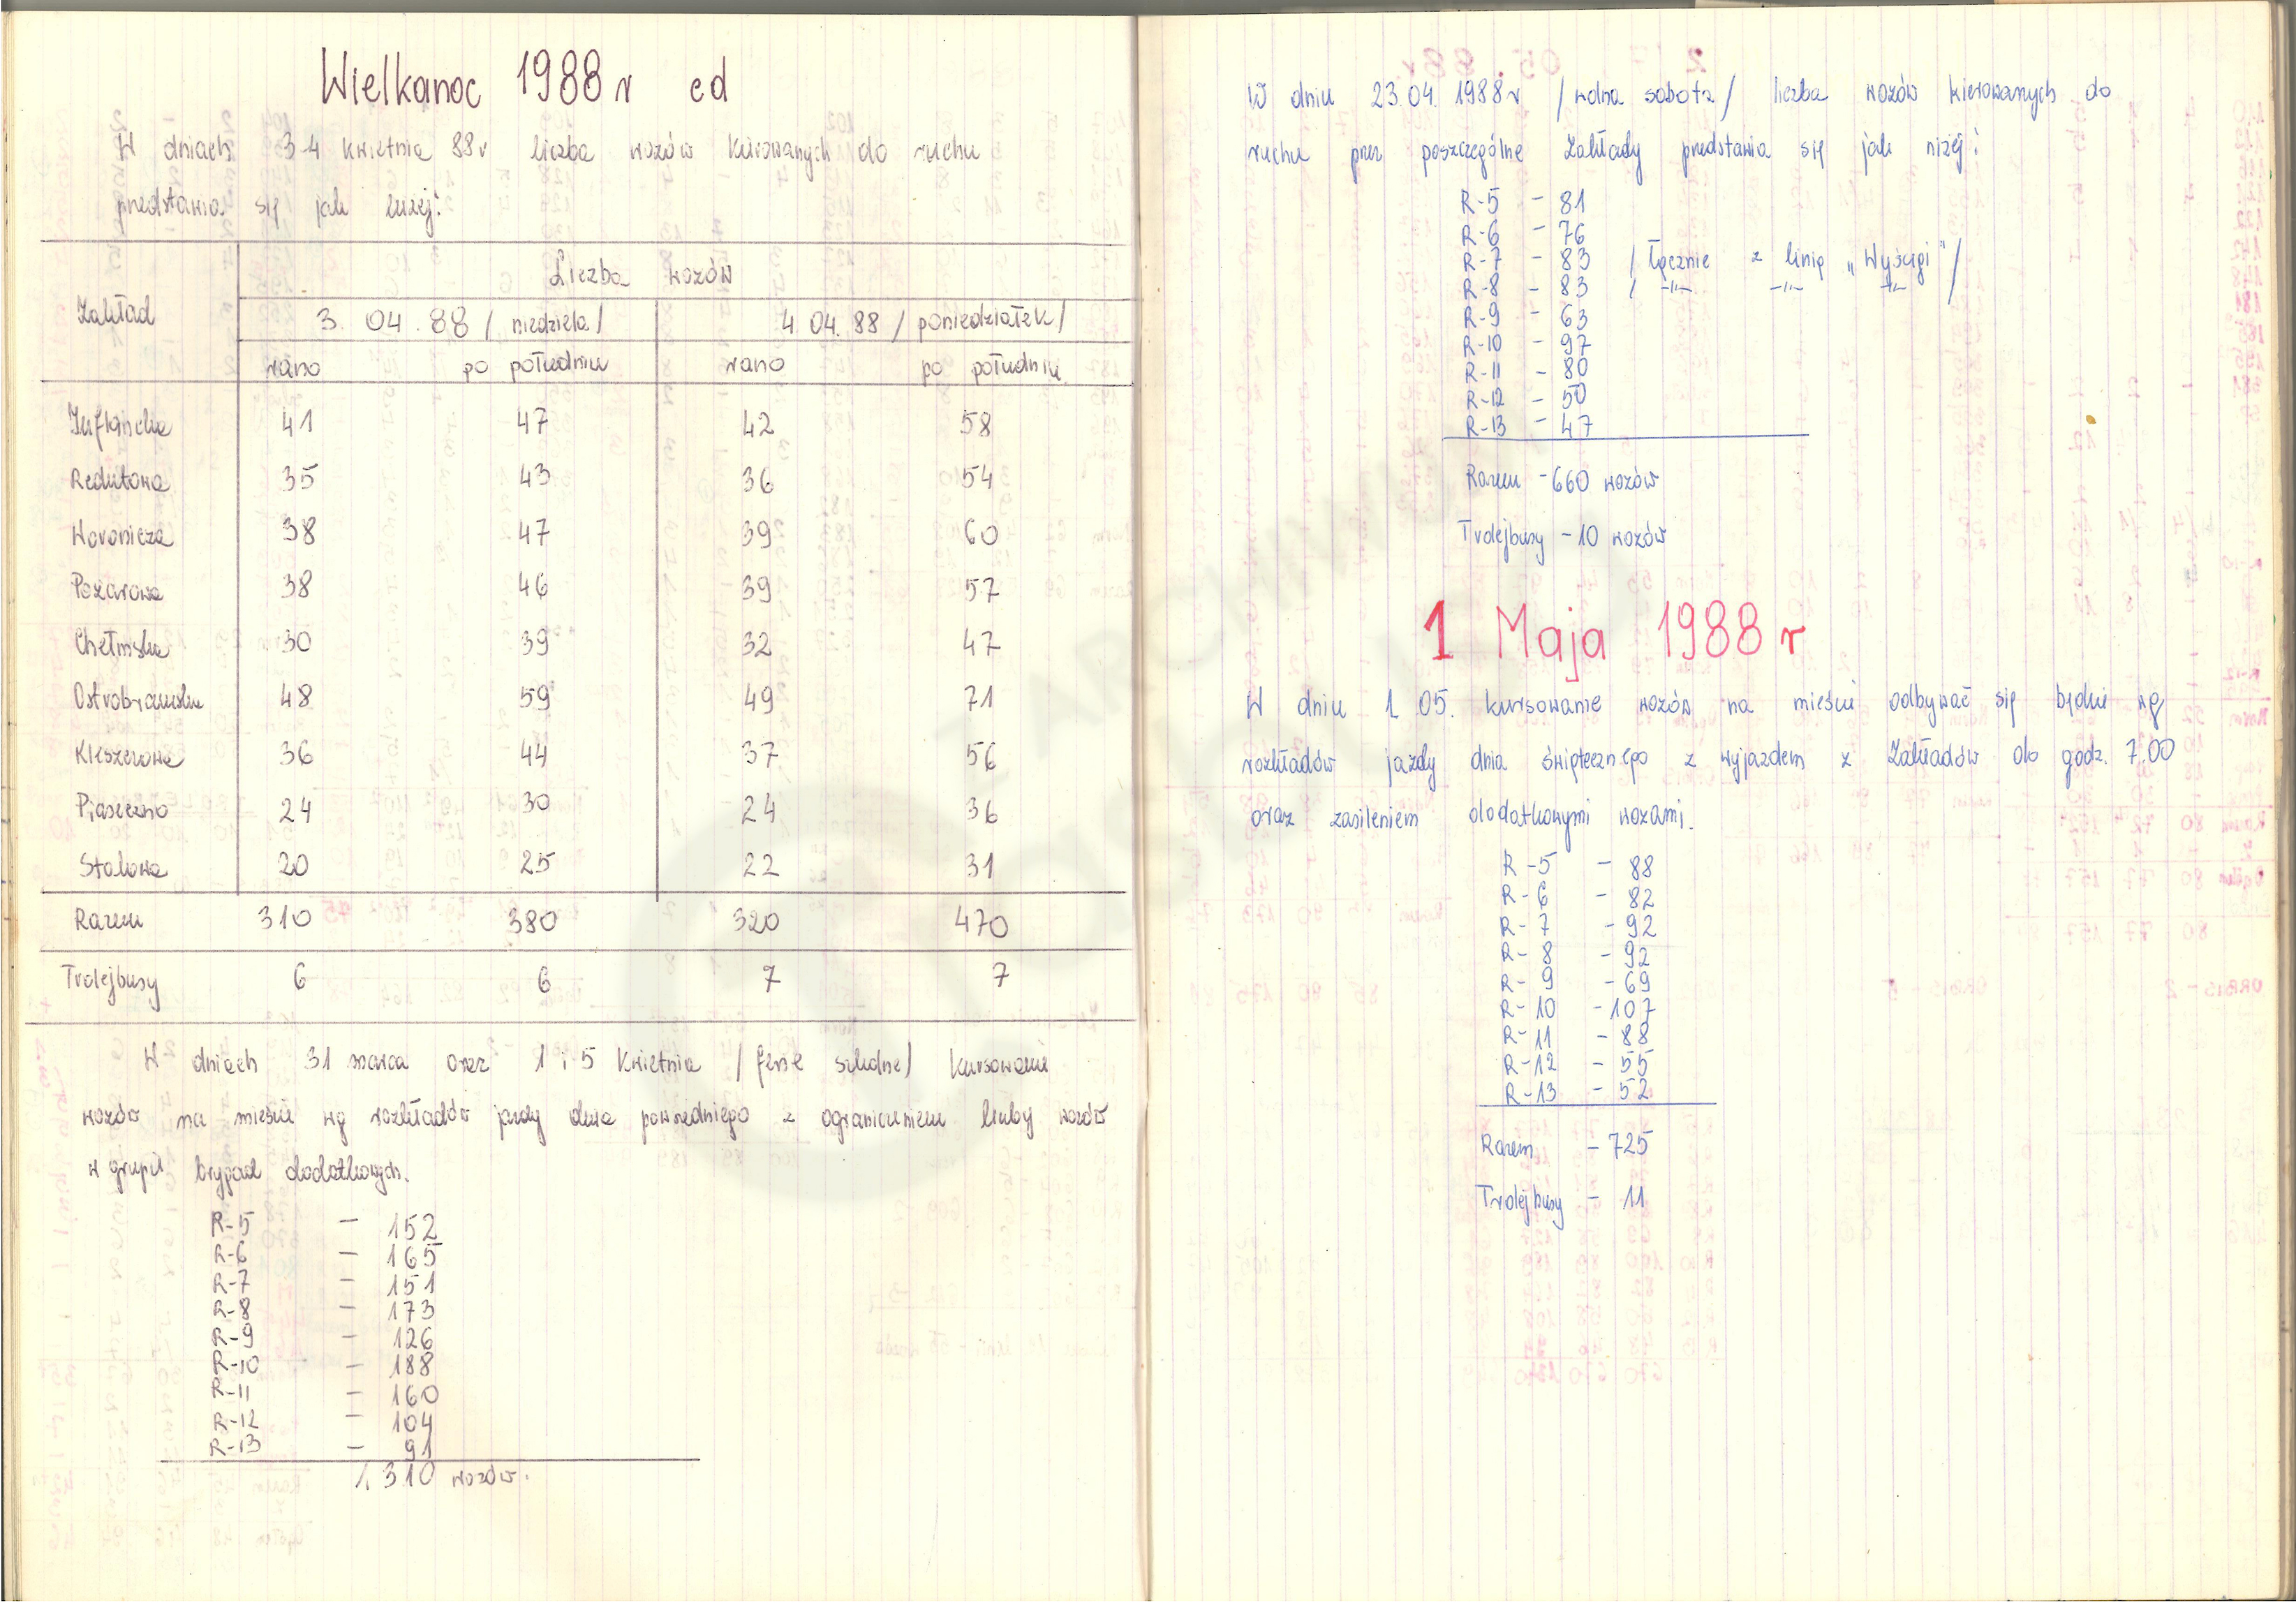 Wielkanoc 1988 r cd
W dniach 3-4 kwietnia 88r liczba wozów kierowanych do ruchu
przedstawia się jak niżej:
Zakład
Liczba wozów
3.04.88 / niedziela / 4.04.88 / poniedziałek /
rano po południu rano po południu
Inflancka 41 47 42 58
Redutowa 35 43 36 54
Woronicza 38 47 39 60
Pożarowa 38 46 39 57
Chełmska 30 39 32 47
Ostrobramska 48 59 49 71
Kleszczowa 36 44 37 56
Piaseczno 24 30 24 36
Stalowa 20 25 22 31
Razem 310 380 320 470
Trolejbusy 6 6 7 7
W dniach 31 marca oraz 1 i 5 kwietnia / ferie szkolne / kursowanie
wozów na mieście wg rozkładów jazdy dnia powszedniego z ograniczeniem liczby wozów
w grupie brygad dodatkowych.
R-5 - 152
R-6 - 165
R-7 - 151
R-8 - 173
R-9 - 126
R-10 - 188
R-11 - 160
R-12 - 104
R-13 - 91
1.310 wozów.
W dniu 23.04.1988r / wolna sobota / liczba wozów kierowanych do
ruchu przez poszczególne Zakłady przedstawia się jak niżej:
R-5 - 81
R-6 - 76
R-7 - 83 / łącznie z linią „Wyścigi" /
R-8 - 83 / -"- -"- -"- /
R-9 - 63
R-10 - 97
R-11 - 80
R-12 - 50
R-13 - 47
Razem - 660 wozów
Trolejbusy - 10 wozów
1 Maja 1988 r
W dniu 1.05. kursowanie wozów na mieście odbywać się będzie wg
rozkładów jazdy dnia świątecznego z wyjazdem z Zakładów do godz. 7.00
oraz zasileniem dodatkowymi wozami.
R-5 - 88
R-6 - 82
R-7 - 92
R-8 - 92
R-9 - 69
R-10 - 107
R-11 - 88
R-12 - 55
R-13 - 52
Razem - 725
Trolejbusy - 11